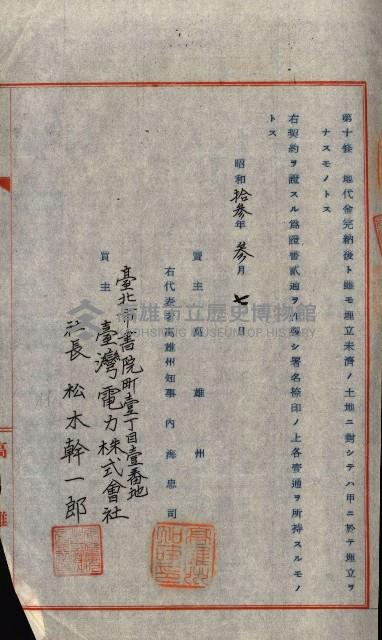 第十條 地代金完納後ト雖モ埋立未濟ノ土地ニ對シテハ甲ニ於テ埋立ヲ
ナスモノトス
右契約ヲ證スル為證書貳通ヲ作製シ署名捺印ノ上各壹通ヲ所持スルモノ
トス
昭和拾參年參月七日
賣主 高雄州
右代表者高雄州知事 內海忠司
臺北市書院町壹丁目壹番地
買主 臺灣電力株式會社
社長 松木幹一郎
高雄
高雄市立歷史博物館
KAOHSIUNG MUSEUM OF HISTORY